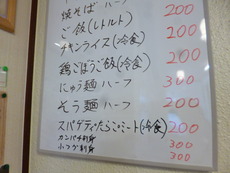 焼そば ハーフ 200
ご飯(レトルト) 200
チキンライス(冷食) 200
鶏ごぼうご飯(冷食) 200
にゅう麺ハーフ 300
そう麺ハーフ 200
スパゲティたらこ・ミート(冷食) 200
カンパチ刺身 300
300